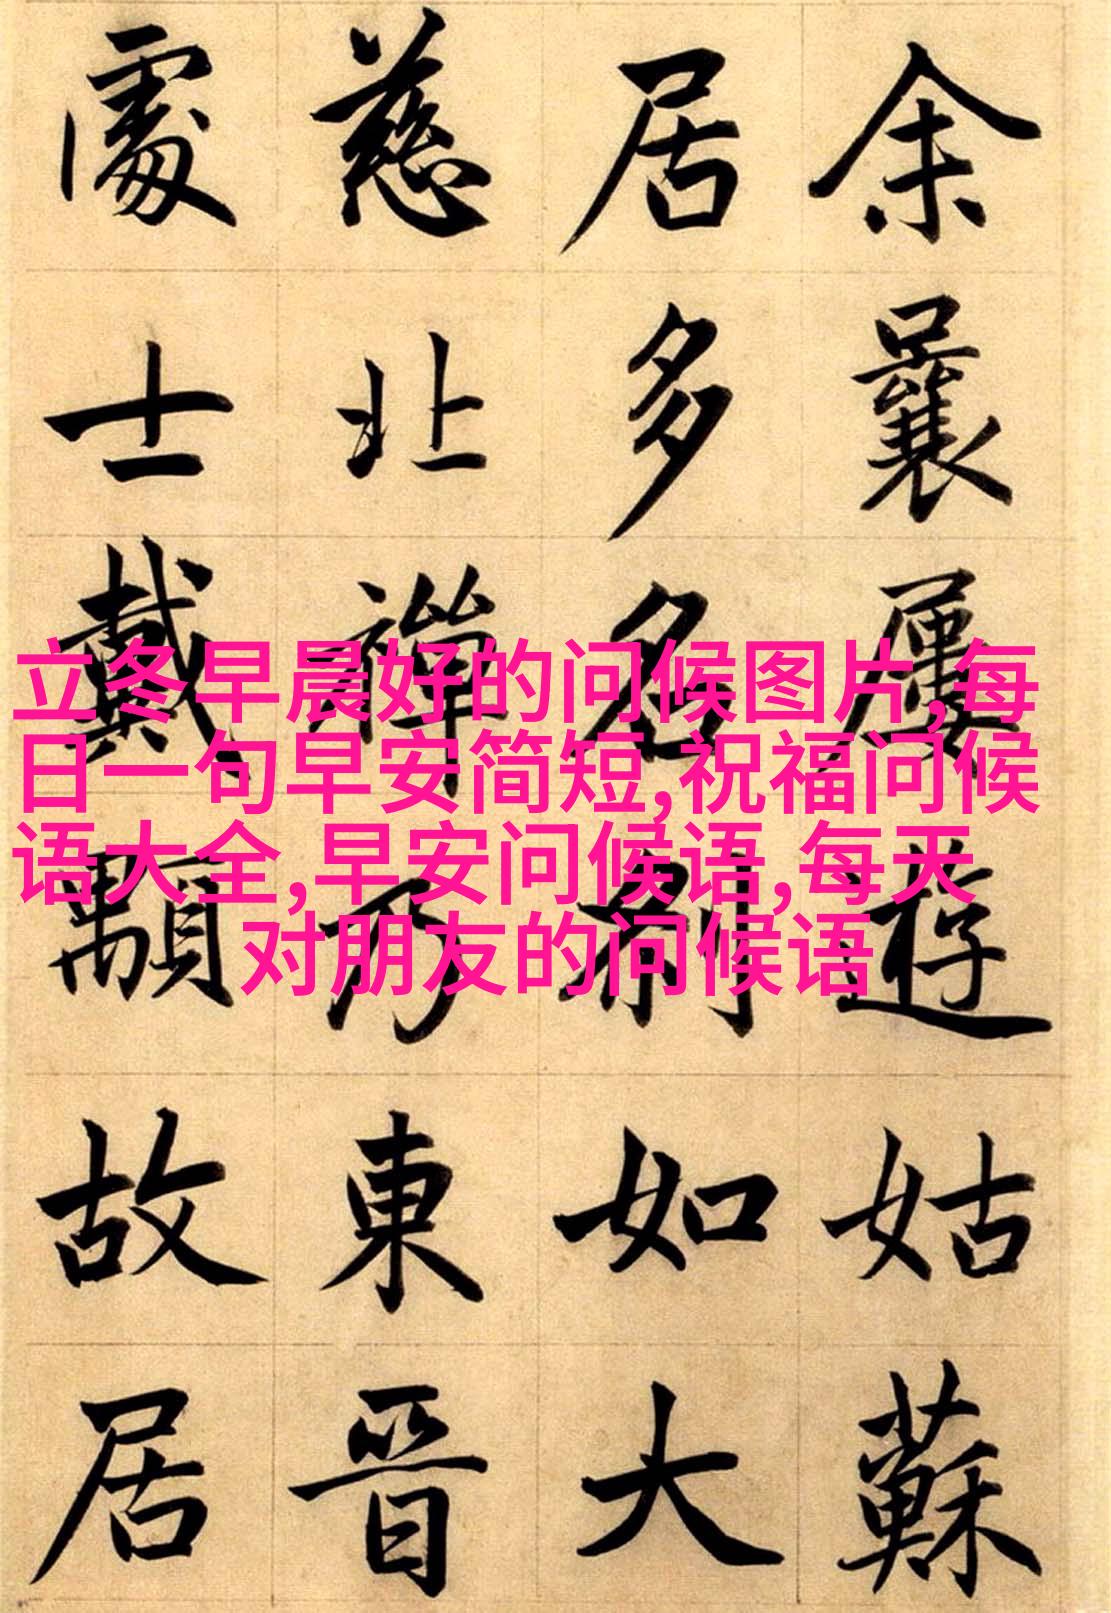 余曩屢遊姑蘇
居多名刹如大
慈北禪乃東晉
處士戴顒故居
立冬早晨好的问候图片,每
日一句早安简短,祝福问候
语大全,早安问候语,每天
对朋友的问候语